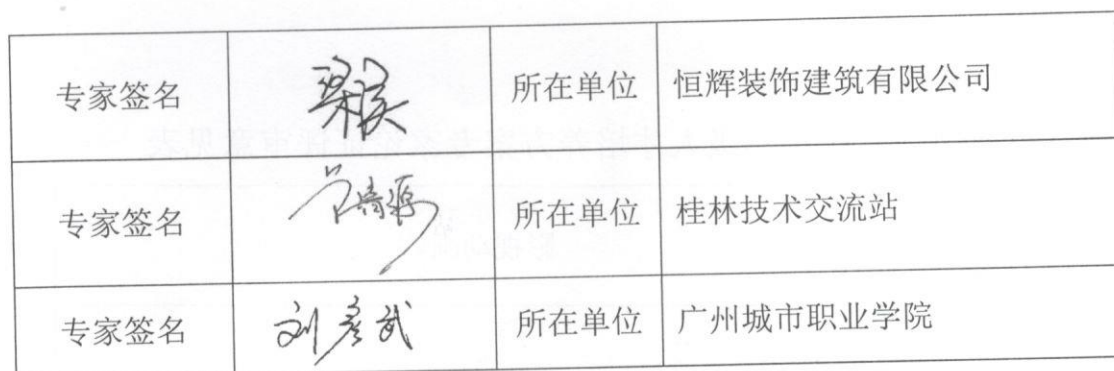 专家签名 梁侯 所在单位 恒辉装饰建筑有限公司
专家签名 所在单位 桂林技术交流站
专家签名 刘彦武 所在单位 广州城市职业学院